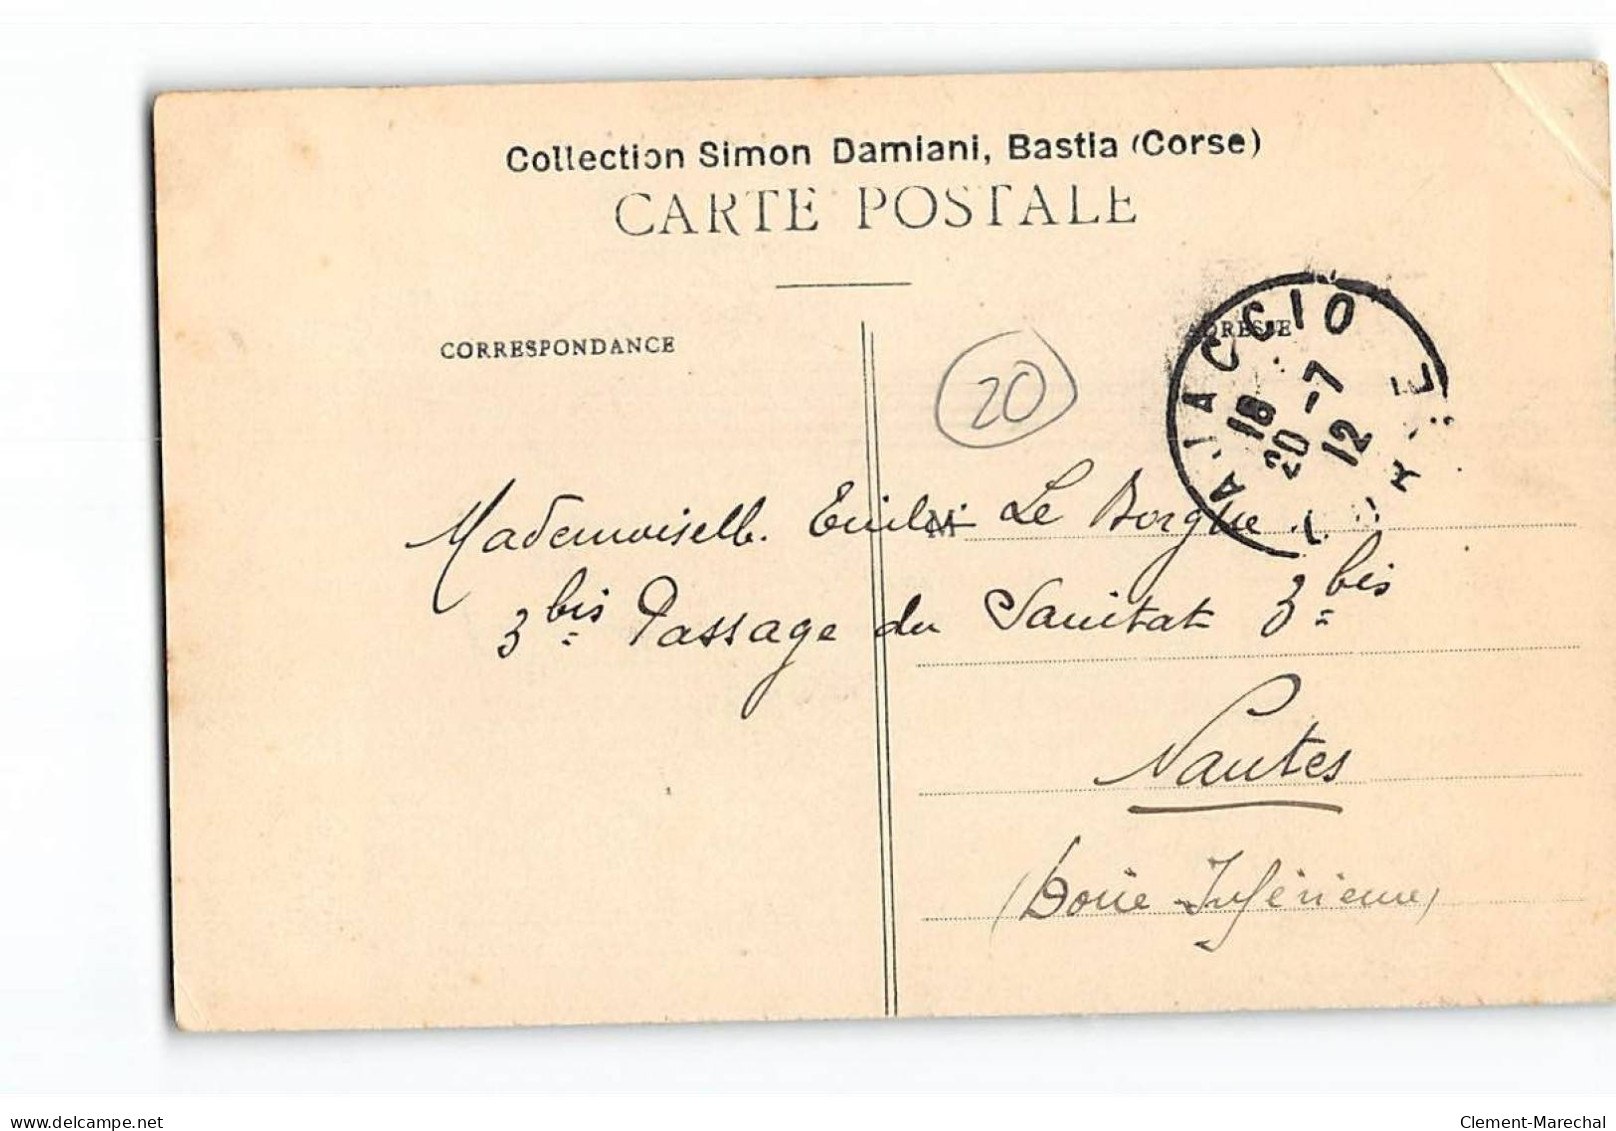 Collection Simon Damiani, Bastia (Corse)
CARTE POSTALE
CORRESPONDANCE
ADRESSE
20
AJACCIO
18
20 - 7
12
Mademoiselle Emilie Le Borgne
M
3 bis Passage du Sanitat 3 bis
Nantes
(Loire Inférieure)
delcampe.net
Clement-Marechal